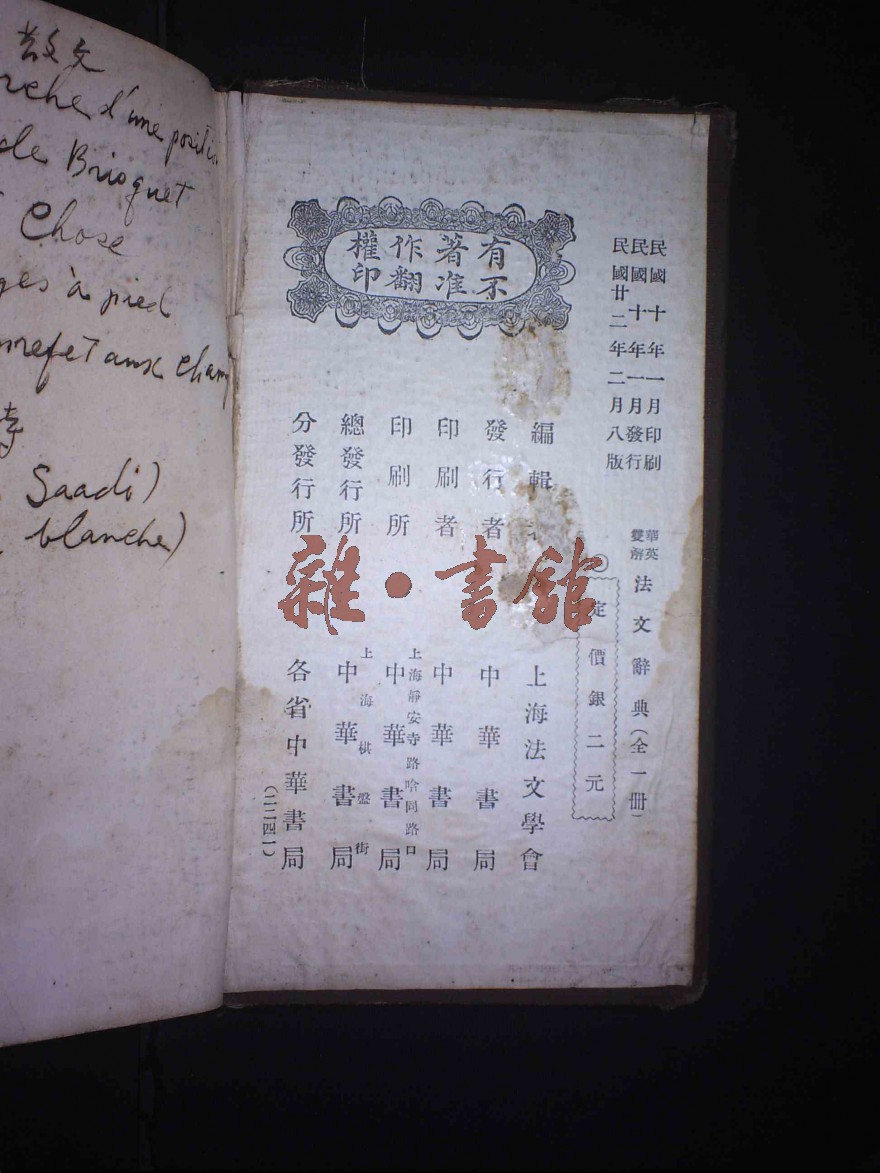 散文
rche d'une position
de Brioquet
Chose
ges à pied
aux champ
Saadi)
blanche)
民國十年一月印刷
民國十年一月發行
民國廿二年二月八版
有著作權
不准翻印
華英雙解法文辭典(全一冊)
定價銀二元
編輯 上海法文學會
發行者 中華書局
印刷者 中華書局
印刷所 上海靜安寺路哈同路口 中華書局
總發行所 上海棋盤街 中華書局
分發行所 各省中華書局
(二二四一)
雜·書館